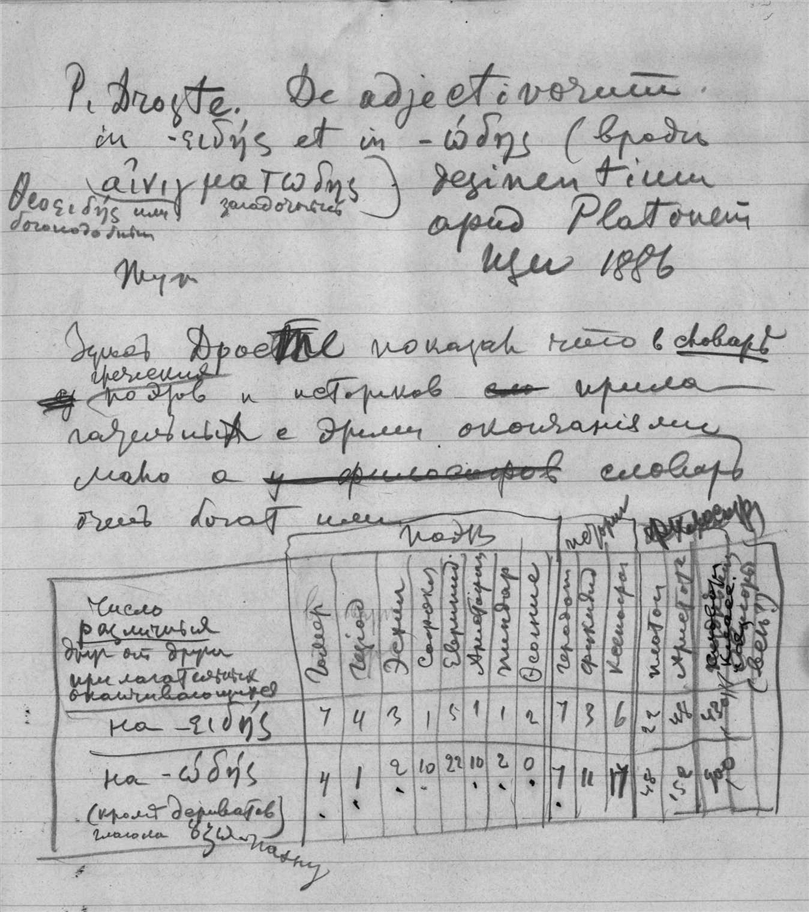 P. Droste. De adjectivorum
in -ειδής et in -ώδης (вроде
αἰνιγματώδης) desinentium
загадочный
Θεοειδής или
богоподобный
apud Platonem
1886
Дросте показал что в словарѣ
греческих
поэтов и историков прила
гательных с этими окончаніями
мало а у философов словарь
очень богат ими
поэты
Число
различных
друг от друга
прилагательных
оканчивающихся
Гомер
Гезіод
Эсхил
Софокл
Еврипид
Аристофан
Пиндар
Геродот
Фукидид
Ксенофон
Платон
Аристотель
на -ειδής 7 4 3 1 5 1 1 2 7 3 6 22
на -ώδης 4 1 2 10 22 10 2 0 7 11 17 48
(кроме дериватов
глагола ὄζω пахну